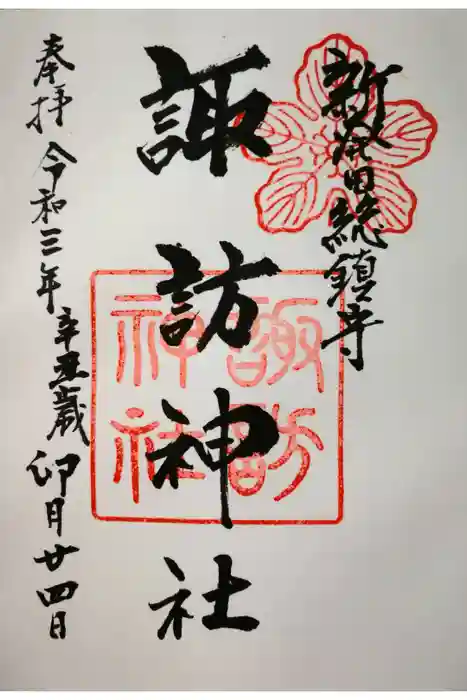 新発田総鎮守
諏訪神社
諏訪
神社
奉拝 令和三年 辛丑歳 卯月廿四日